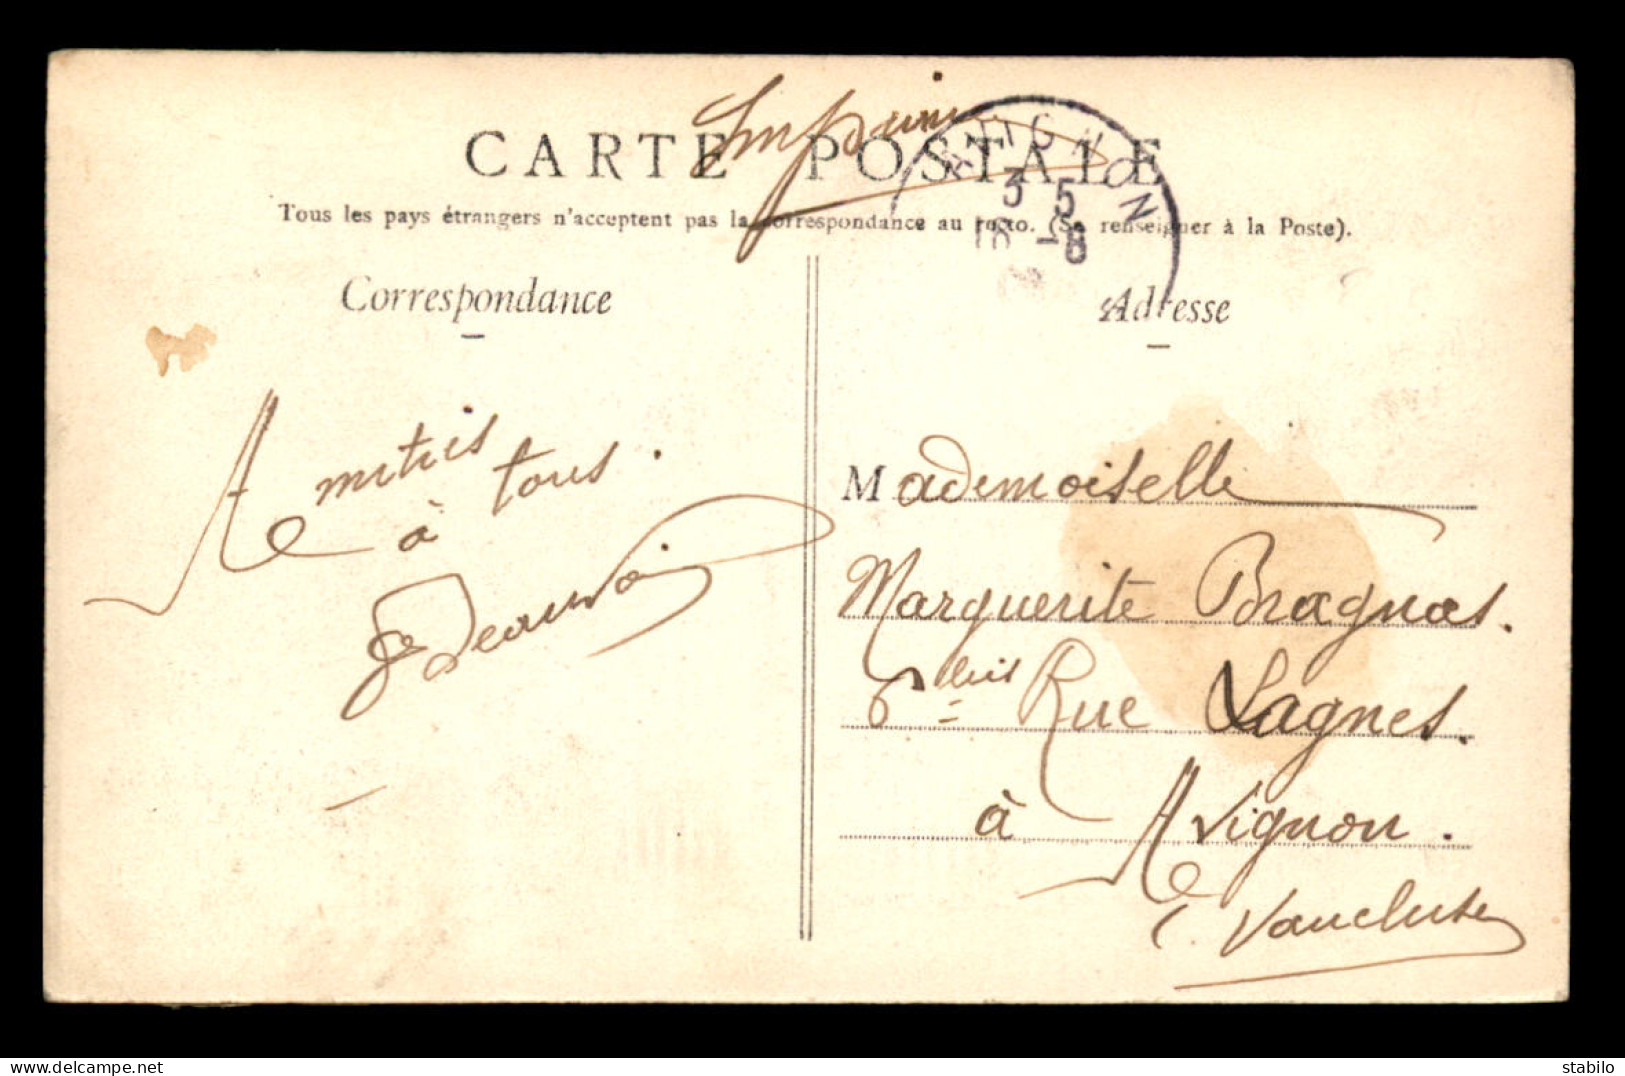 CARTE POSTALE
Tous les pays étrangers n'acceptent pas la correspondance au recto. (Se renseigner à la Poste).
AVIGNON
3 5
16 -8
Correspondance
Amitiés
à tous.
Adresse
Mademoiselle
Marguerite Bragnas.
6 bis Rue Lagnes.
à Avignon.
Vaucluse
delcampe.net
stabilo